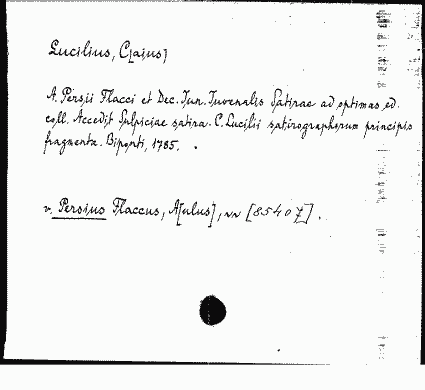 Lucilius, C[aius]
A. Persii Flacci et Dec. Jun. Juvenalis Satirae ad optimas ed.
coll. Accedit Sulpiciae satira. C. Lucilii satirographorum principis
fragmenta. Biponti, 1785.
v. Persius Flaccus, A[ulus], [85407].